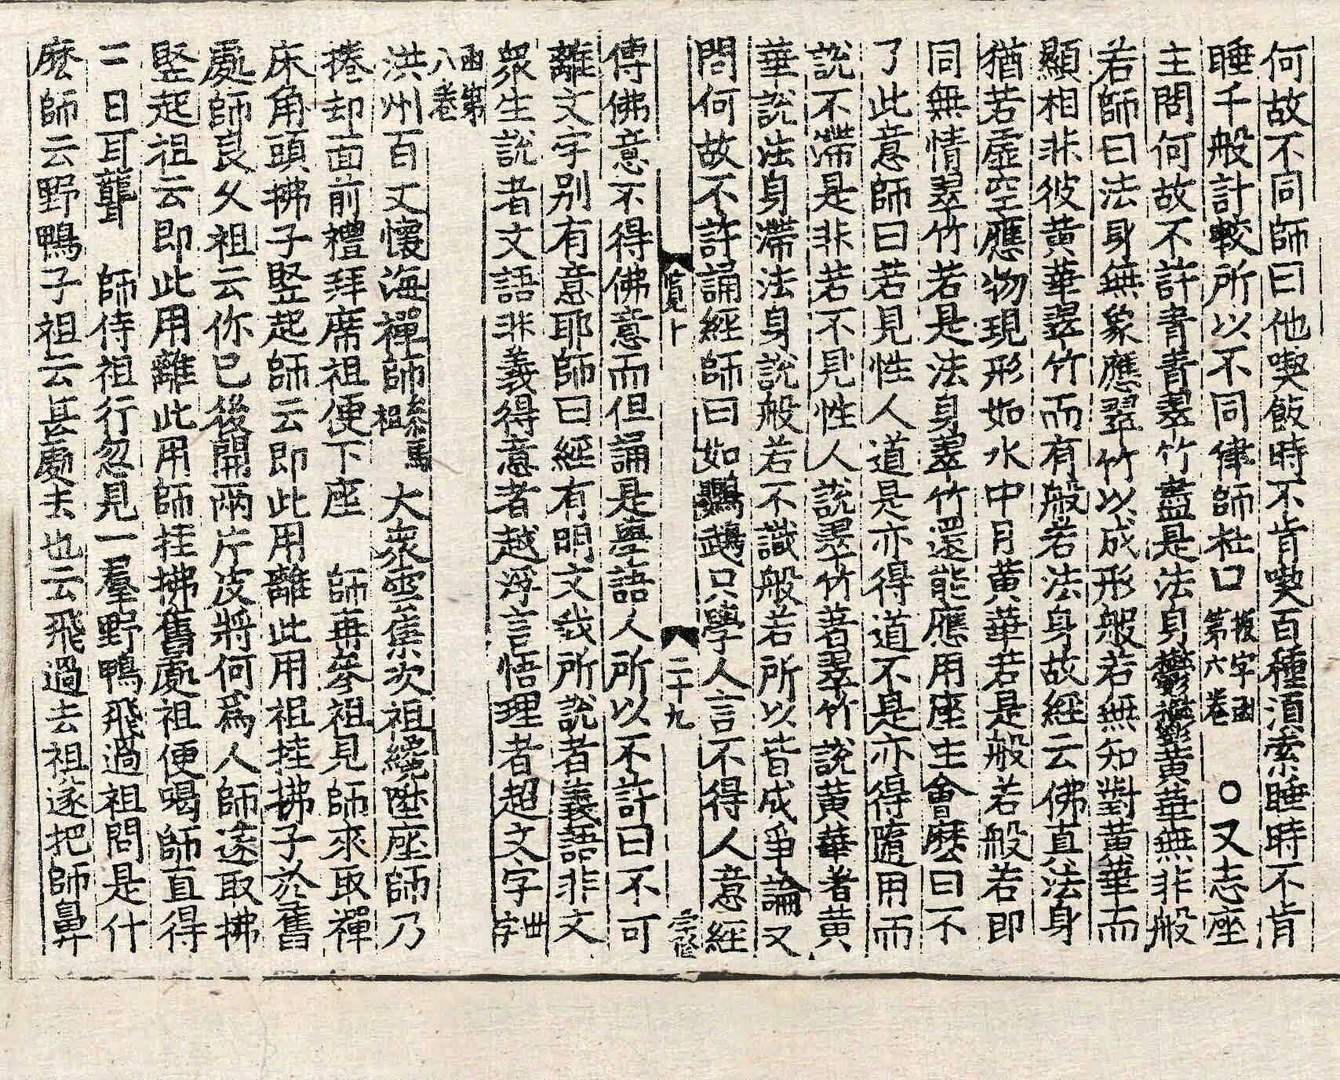 何故不同師曰他喫飯時不肯喫百種須索睡時不肯
睡千般計較所以不同律師杜口
板字函
第六卷
○又志座
主問何故不許青青翠竹盡是法身鬱鬱黃華無非般
若師曰法身無象應翠竹以成形般若無知對黃華而
顯相非彼黃華翠竹而有般若法身故經云佛真法身
猶若虛空應物現形如水中月黃華若是般若般若即
同無情翠竹若是法身翠竹還能應用座主會麽曰不
了此意師曰若見性人道是亦得道不是亦得隨用而
說不滯是非若不見性人說翠竹著翠竹說黃華著黃
華說法身滯法身說般若不識般若所以皆成爭論又
問何故不許誦經師曰如鸚鵡只學人言不得人意經
二十九
傳佛意不得佛意而但誦是學語人所以不許曰不可
離文字別有意耶師曰經有明文我所說者義語非文
衆生說者文語非義得意者越浮言悟理者超文字
世字
函第
八卷
洪州百丈懷海禪師
嗣馬
祖
大衆雲集次祖纔陞座師乃
捲却面前禮拜席祖便下座 師再參祖見師來取禪
床角頭拂子竪起師云即此用離此用祖挂拂子於舊
處師良久祖云你已後開兩片皮將何爲人師遂取拂
竪起祖云即此用離此用師挂拂舊處祖便喝師直得
三日耳聾 師侍祖行忽見一羣野鴨飛過祖問是什
麽師云野鴨子祖云甚處去也云飛過去祖遂把師鼻